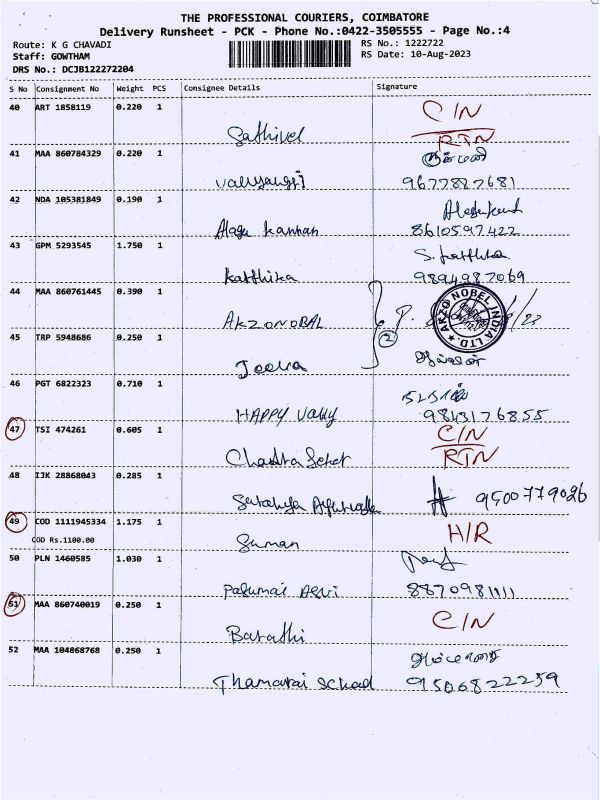 THE PROFESSIONAL COURIERS, COIMBATORE
Delivery Runsheet - PCK - Phone No.:0422-3505555 - Page No.:4
Route: K G CHAVADI
Staff: GOWTHAM
DRS No.: DCJB122272204
RS No.: 1222722
RS Date: 10-Aug-2023
S No Consignment No Weight PCS Consignee Details Signature
40 ART 1858119 0.220 1 C/N
Sathivel RTN
41 MAA 860784329 0.220 1
9677887681
42 NDA 105381849 0.190 1
Alagu Kannan 8610597422
43 GPM 5293545 1.750 1
Katthika 9894987069
44 MAA 860761445 0.390 1
AKZONOBAL 2 AKZO NOBEL INDIA LTD.
45 TRP 5948686 0.250 1
46 PGT 6822323 0.710 1
HAPPY Vally 9843176855
47 TSI 474261 0.605 1 C/N
Chandra Sekar RTN
48 IJK 28868043 0.285 1
9500779026
49 COD 1111945334 1.175 1 H/R
COD Rs.1100.00 Suman
50 PLN 1460585 1.030 1
8870981111
51 MAA 860740019 0.250 1 C/N
Barathi
52 MAA 104868768 0.250 1
Thamarai 9506822259